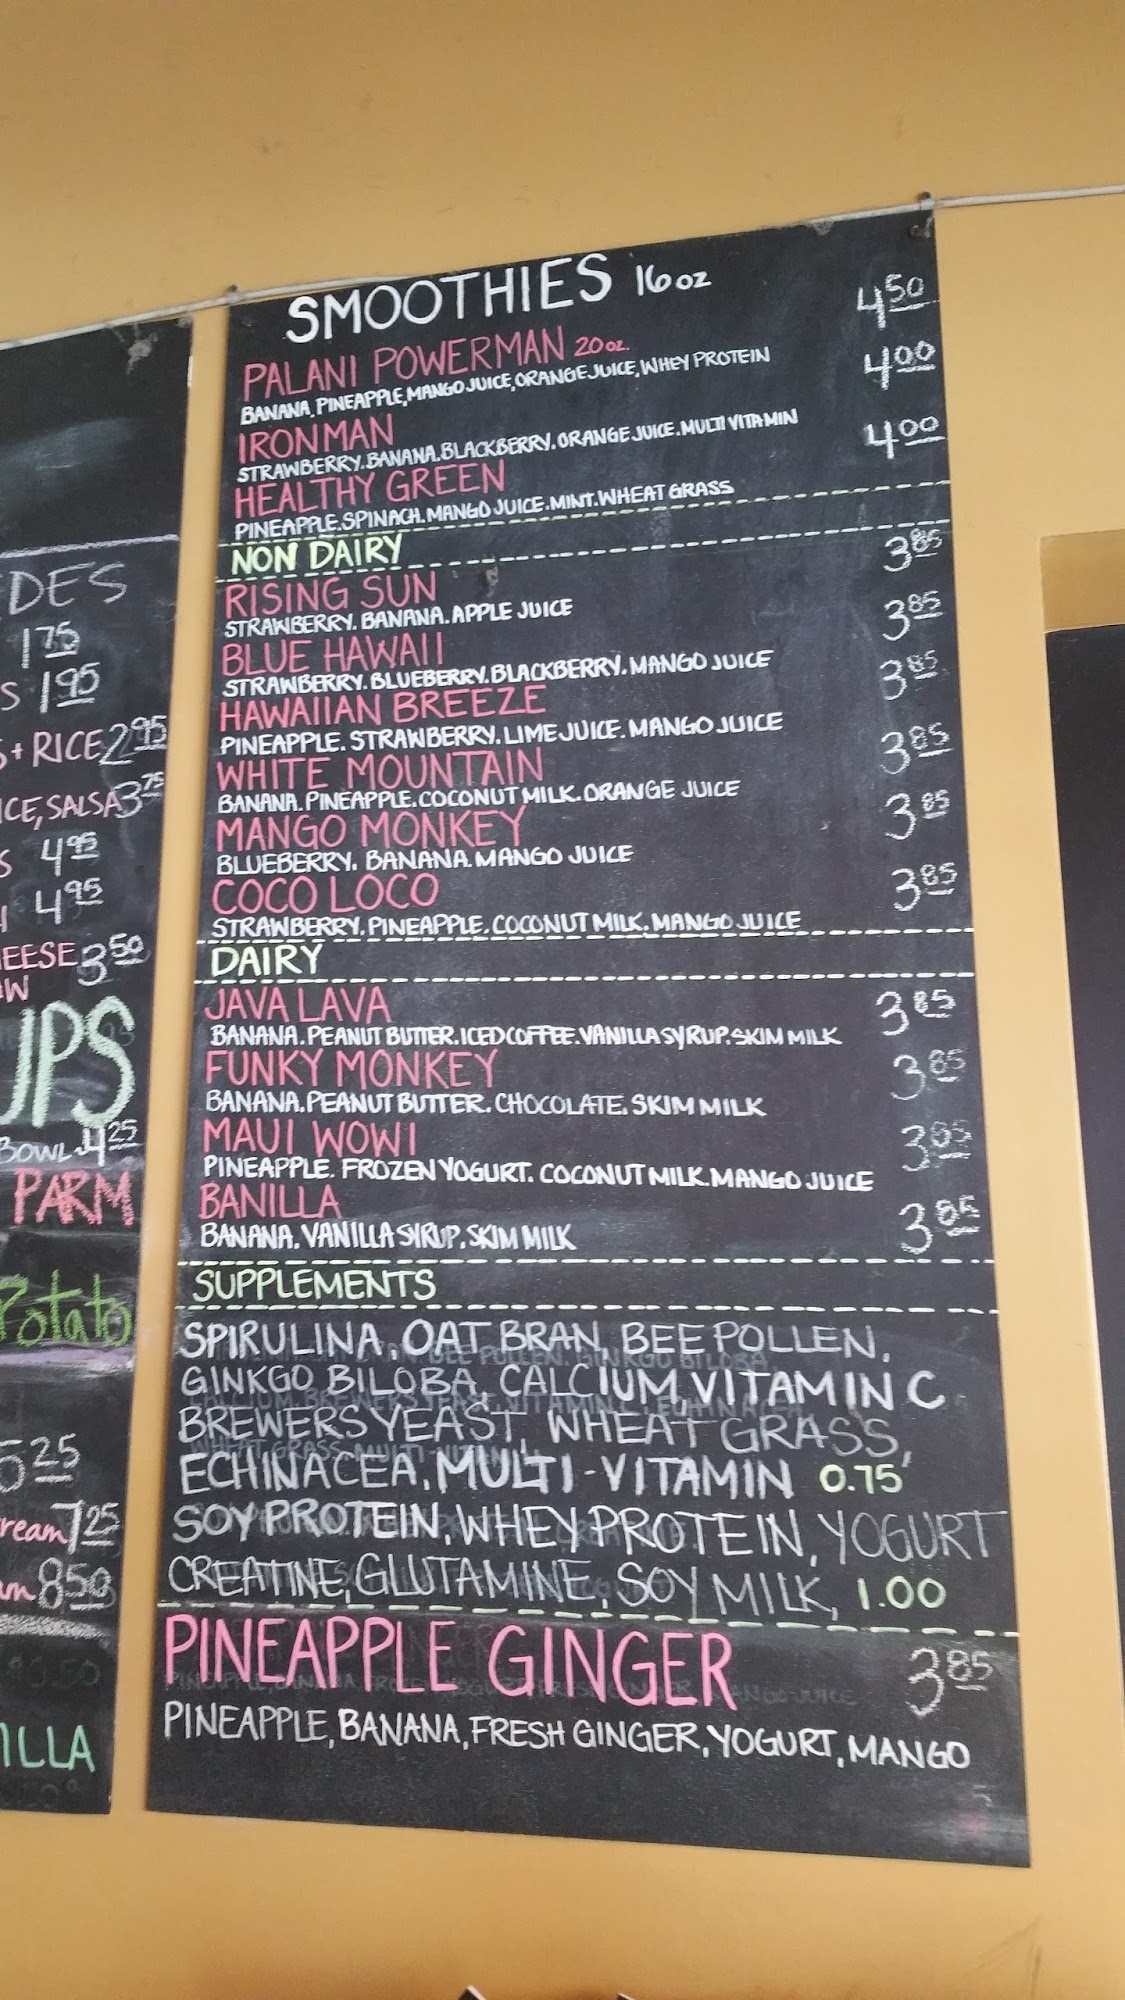 SMOOTHIES 16 oz
PALANI POWERMAN 20 oz. 4.50
BANANA, PINEAPPLE, MANGO JUICE, ORANGE JUICE, WHEY PROTEIN
IRONMAN 4.00
STRAWBERRY. BANANA. BLACKBERRY. ORANGE JUICE. MULTI VITAMIN
HEALTHY GREEN 4.00
PINEAPPLE. SPINACH. MANGO JUICE. MINT. WHEAT GRASS
NON DAIRY
RISING SUN 3.85
STRAWBERRY. BANANA. APPLE JUICE
BLUE HAWAII 3.85
STRAWBERRY. BLUEBERRY. BLACKBERRY. MANGO JUICE
HAWAIIAN BREEZE 3.85
PINEAPPLE. STRAWBERRY. LIME JUICE. MANGO JUICE
WHITE MOUNTAIN 3.85
BANANA. PINEAPPLE. COCONUT MILK. ORANGE JUICE
MANGO MONKEY 3.85
BLUEBERRY. BANANA. MANGO JUICE
COCO LOCO 3.85
STRAWBERRY. PINEAPPLE. COCONUT MILK. MANGO JUICE
DAIRY
JAVA LAVA 3.85
BANANA. PEANUT BUTTER. ICED COFFEE. VANILLA SYRUP. SKIM MILK
FUNKY MONKEY 3.85
BANANA. PEANUT BUTTER. CHOCOLATE. SKIM MILK
MAUI WOWI 3.85
PINEAPPLE. FROZEN YOGURT. COCONUT MILK. MANGO JUICE
BANILLA 3.85
BANANA. VANILLA SYRUP. SKIM MILK
SUPPLEMENTS
SPIRULINA, OAT BRAN, BEE POLLEN,
GINKGO BILOBA, CALCIUM, VITAMIN C
BREWERS YEAST, WHEAT GRASS,
ECHINACEA, MULTI-VITAMIN 0.75
SOY PROTEIN, WHEY PROTEIN, YOGURT
CREATINE, GLUTAMINE, SOY MILK, 1.00
PINEAPPLE GINGER 3.85
PINEAPPLE, BANANA, FRESH GINGER, YOGURT, MANGO
1.75
1.95
+ RICE 2.95
SALSA 3.75
4.95
4.95
3.50
BOWL 4.25
PARM
Potato
5.25
7.25
8.50